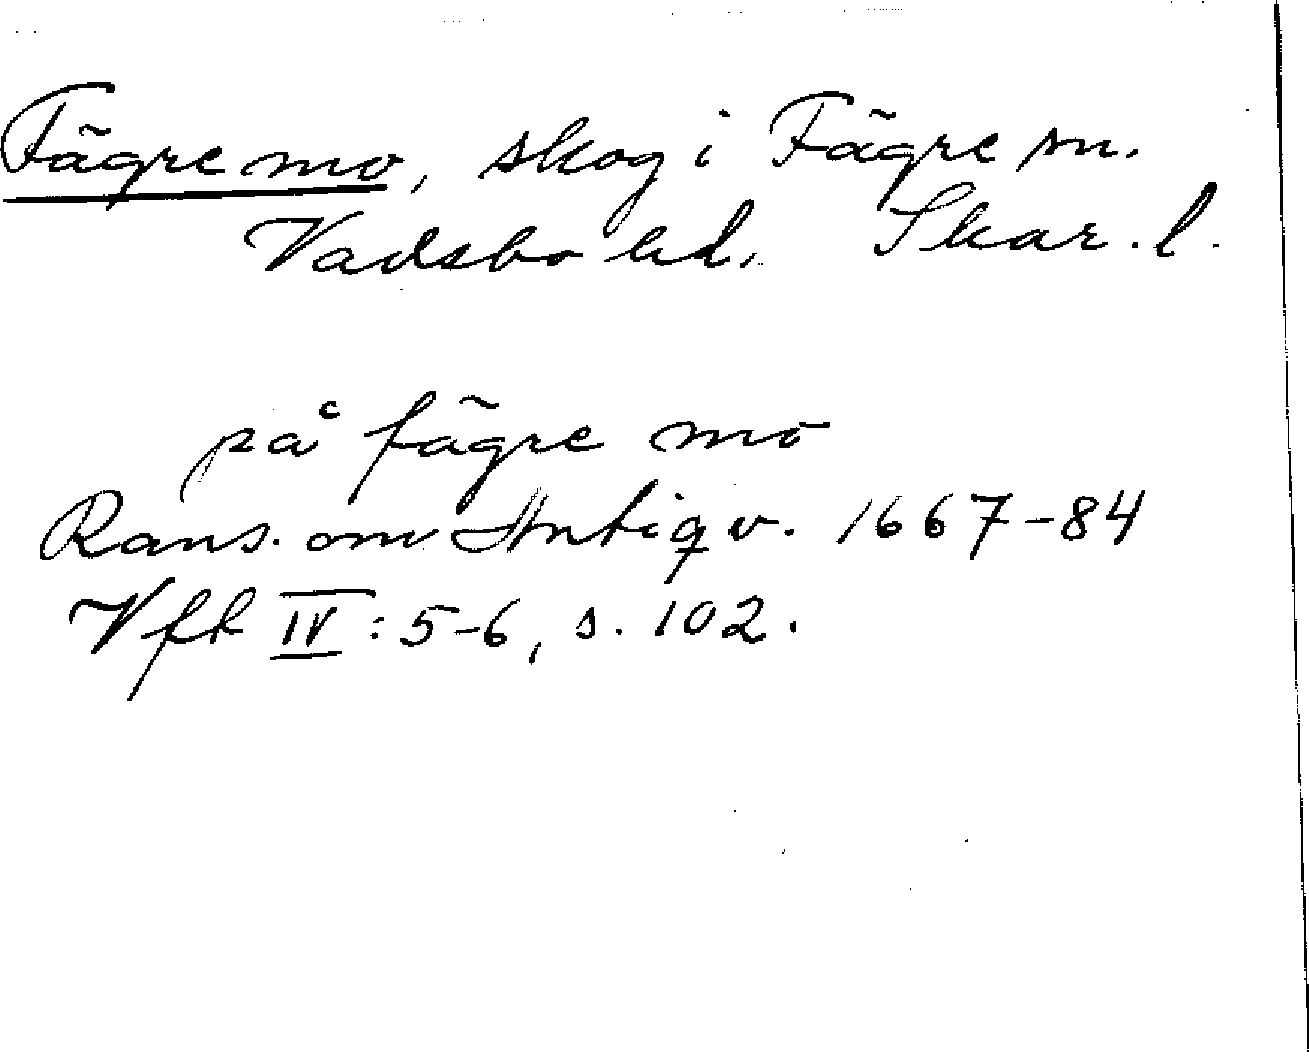 Fägre mo, skog i Fägre sn.
Vadsbo hd. Skar. l.
på fägre mo
Rans. om Antiqv. 1667-84
Vft IV: 5-6, s. 102.